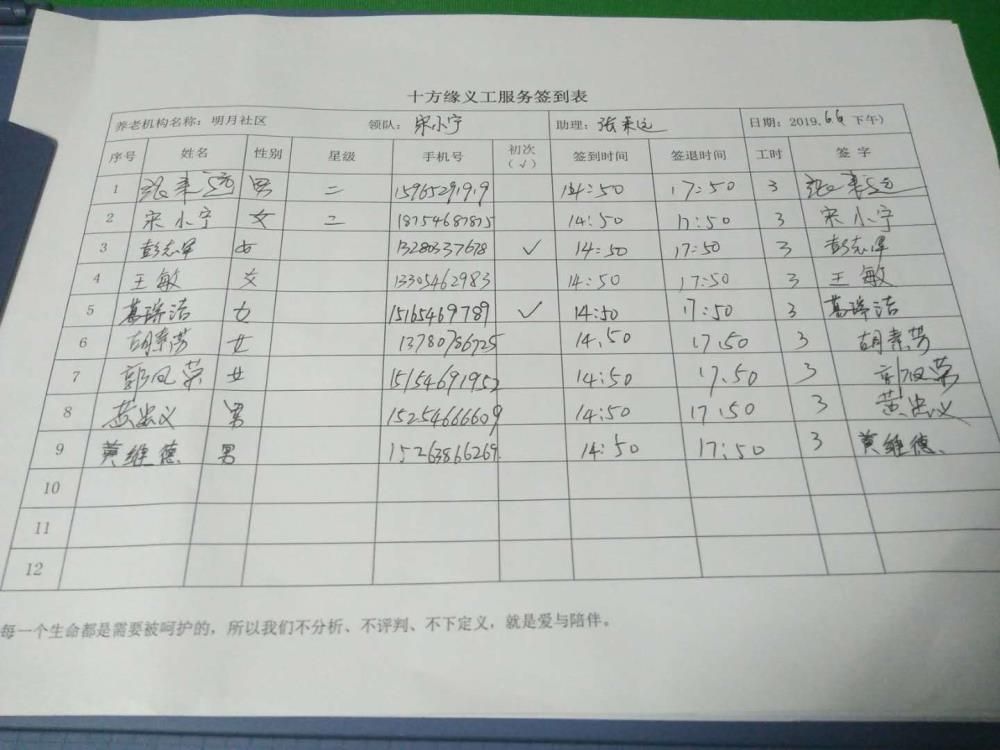 十方缘义工服务签到表
养老机构名称：明月社区 领队：宋小宁 助理：张秉运 日期：2019.6.9 下午）
序号 姓名 性别 星级 手机号 初次（√） 签到时间 签退时间 工时 签字
1 张秉运 男 二 15965291919 14:50 17:50 3 张秉运
2 宋小宁 女 二 18754687875 14:50 17:50 3 宋小宁
3 彭志军 女 13280337678 √ 14:50 17:50 3 彭志军
4 王敏 女 13305462983 14:50 17:50 3 王敏
5 葛瑞洁 女 15165469789 √ 14:50 17:50 3 葛瑞洁
6 胡素芳 女 13780786725 14.50 17.50 3 胡素芳
7 郭凤荣 女 15154691952 14:50 17.50 3 郭凤荣
8 黄忠义 男 15254666609 14:50 17:50 3 黄忠义
9 黄维德 男 15263866269 14:50 17:50 3 黄维德
10
11
12
每一个生命都是需要被呵护的，所以我们不分析、不评判、不下定义，就是爱与陪伴。